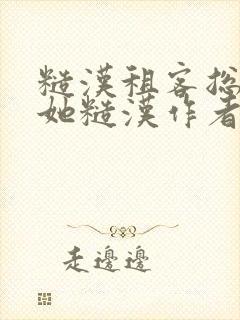 糙漢租客總
她糙漢作者
走邊邊